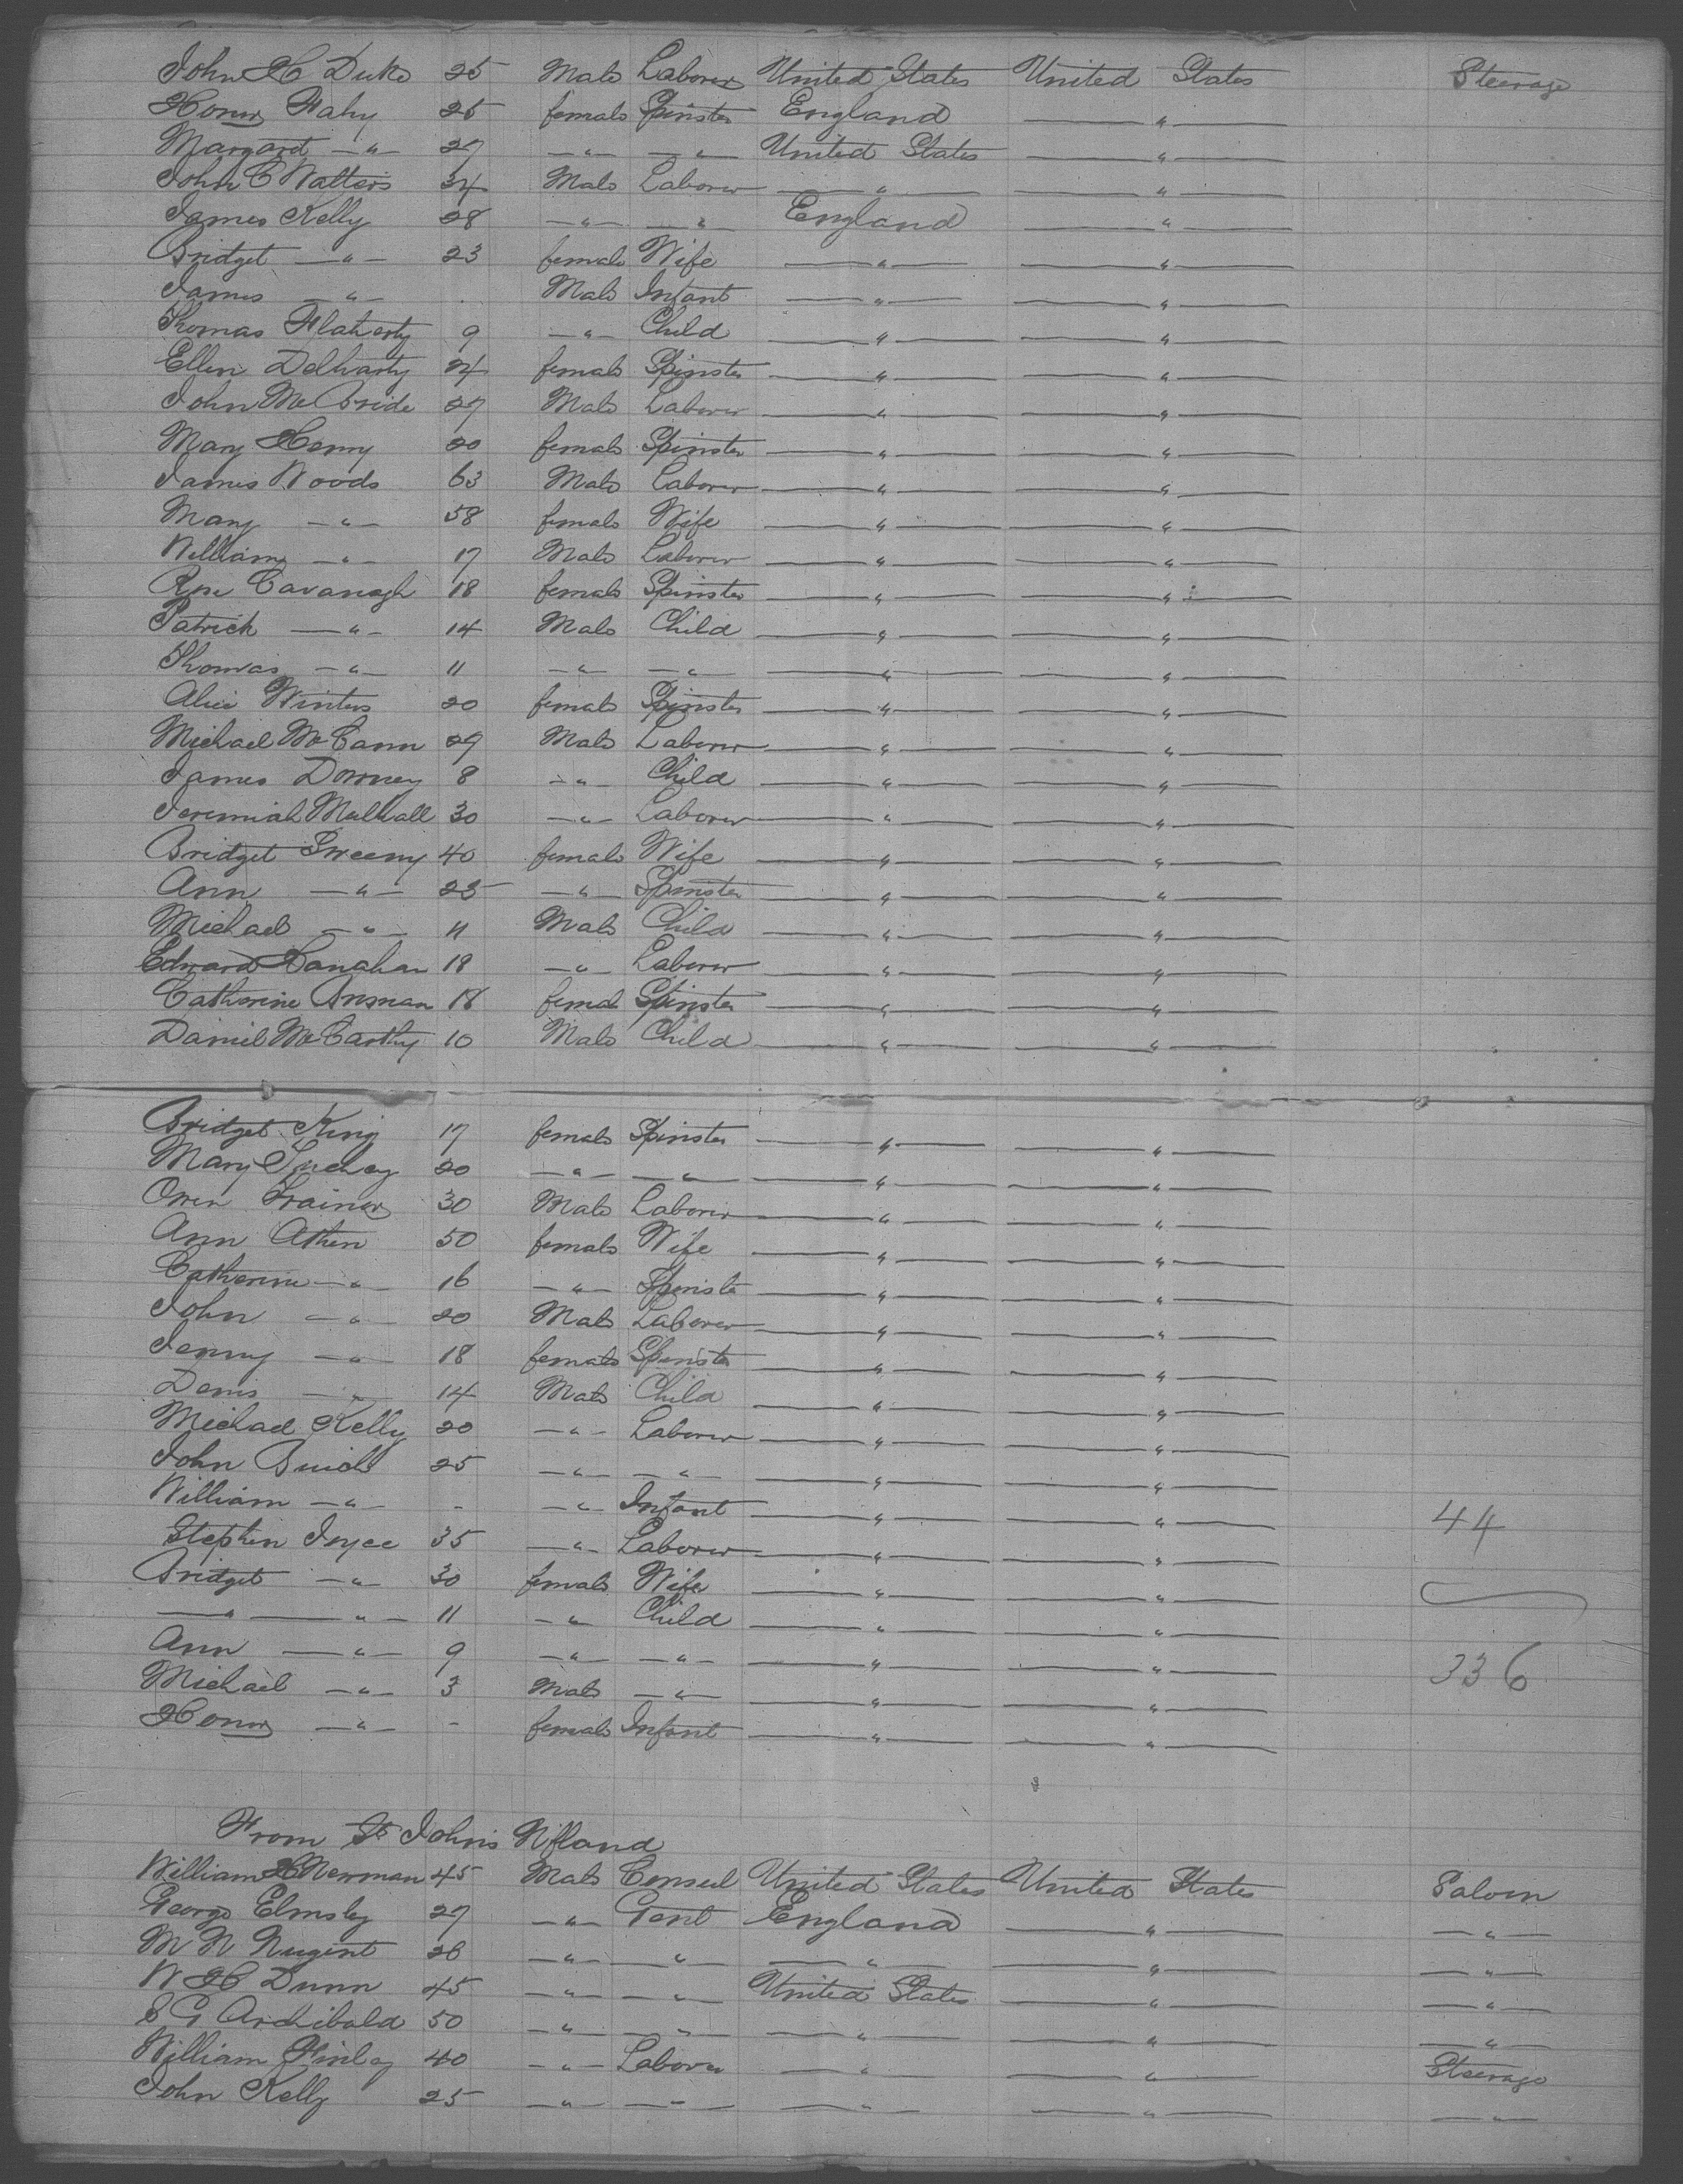 John H Duke 25 Male Laborer United States United States Steerage
Honor Fahy 25 female Spinster England — " —
Margaret — " — 27 — " — — " — United States — " —
John C Walters 34 Male Laborer — " — — " —
James Kelly 28 — " — — " — England — " —
Bridget — " — 23 female Wife — " — — " —
James — " — . Male Infant — " — — " —
Thomas Flaherty 9 — " — Child — " — — " —
Ellen 24 female Spinster — " — — " —
John McBride 27 Male Laborer — " — — " —
Mary Henry 20 female Spinster — " — — " —
James Woods 63 Male Laborer — " — — " —
Mary — " — 58 female Wife — " — — " —
William — " — 17 Male Laborer — " — — " —
Rose Cavanagh 18 female Spinster — " — — " —
Patrick — " — 14 Male Child — " — — " —
Thomas — " — 11 — " — — " — — " — — " —
Alice Winters 20 female Spinster — " — — " —
Michael McCann 29 Male Laborer — " — — " —
James Downey 8 — " — Child — " — — " —
Jeremiah Mulhall 30 — " — Laborer — " — — " —
Bridget Sweeny 40 female Wife — " — — " —
Ann — " — 25 — " — Spinster — " — — " —
Michael — " — 11 Male Child — " — — " —
Edward Lanahan 18 — " — Laborer — " — — " —
Catherine 18 femal Spinster — " — — " —
Daniel McCarthy 10 Male Child — " — — " —
Bridget King 17 female Spinster — " — — " —
Mary 20 — " — — " — — " — — " —
Owen Trainor 30 Male Laborer — " — — " —
Ann Athen 50 female Wife — " — — " —
Catherine — " — 16 — " — Spinster — " — — " —
John — " — 20 Male Laborer — " — — " —
Jenny — " — 18 female Spinster — " — — " —
Denis — " — 14 Male Child — " — — " —
Michael Kelly 20 — " — Laborer — " — — " —
John 25 — " — — " — — " — — " —
William — " — - — " — Infant — " — — " — 44
Stephen Joyce 35 — " — Laborer — " — — " —
Bridget — " — 30 female Wife — " — — " —
— " — — " — 11 — " — Child — " — — " —
Ann — " — 9 — " — — " — — " — — " — 336
Michael — " — 3 Male — " — — " — — " —
Honor — " — - female Infant — " — — " —
From St Johns Nfland
William H Newman 45 Male Consul United States United States Saloon
George Elmsley 27 — " — Gent England — " — — " —
M N Nugent 26 — " — — " — — " — — " — — " —
W H Dunn 45 — " — — " — United States — " — — " —
S G Archibald 50 — " — — " — — " — — " — — " —
William Finlay 40 — " — Laborer — " — — " — Steerage
John Kelly 25 — " — — " — — " — — " — — " —